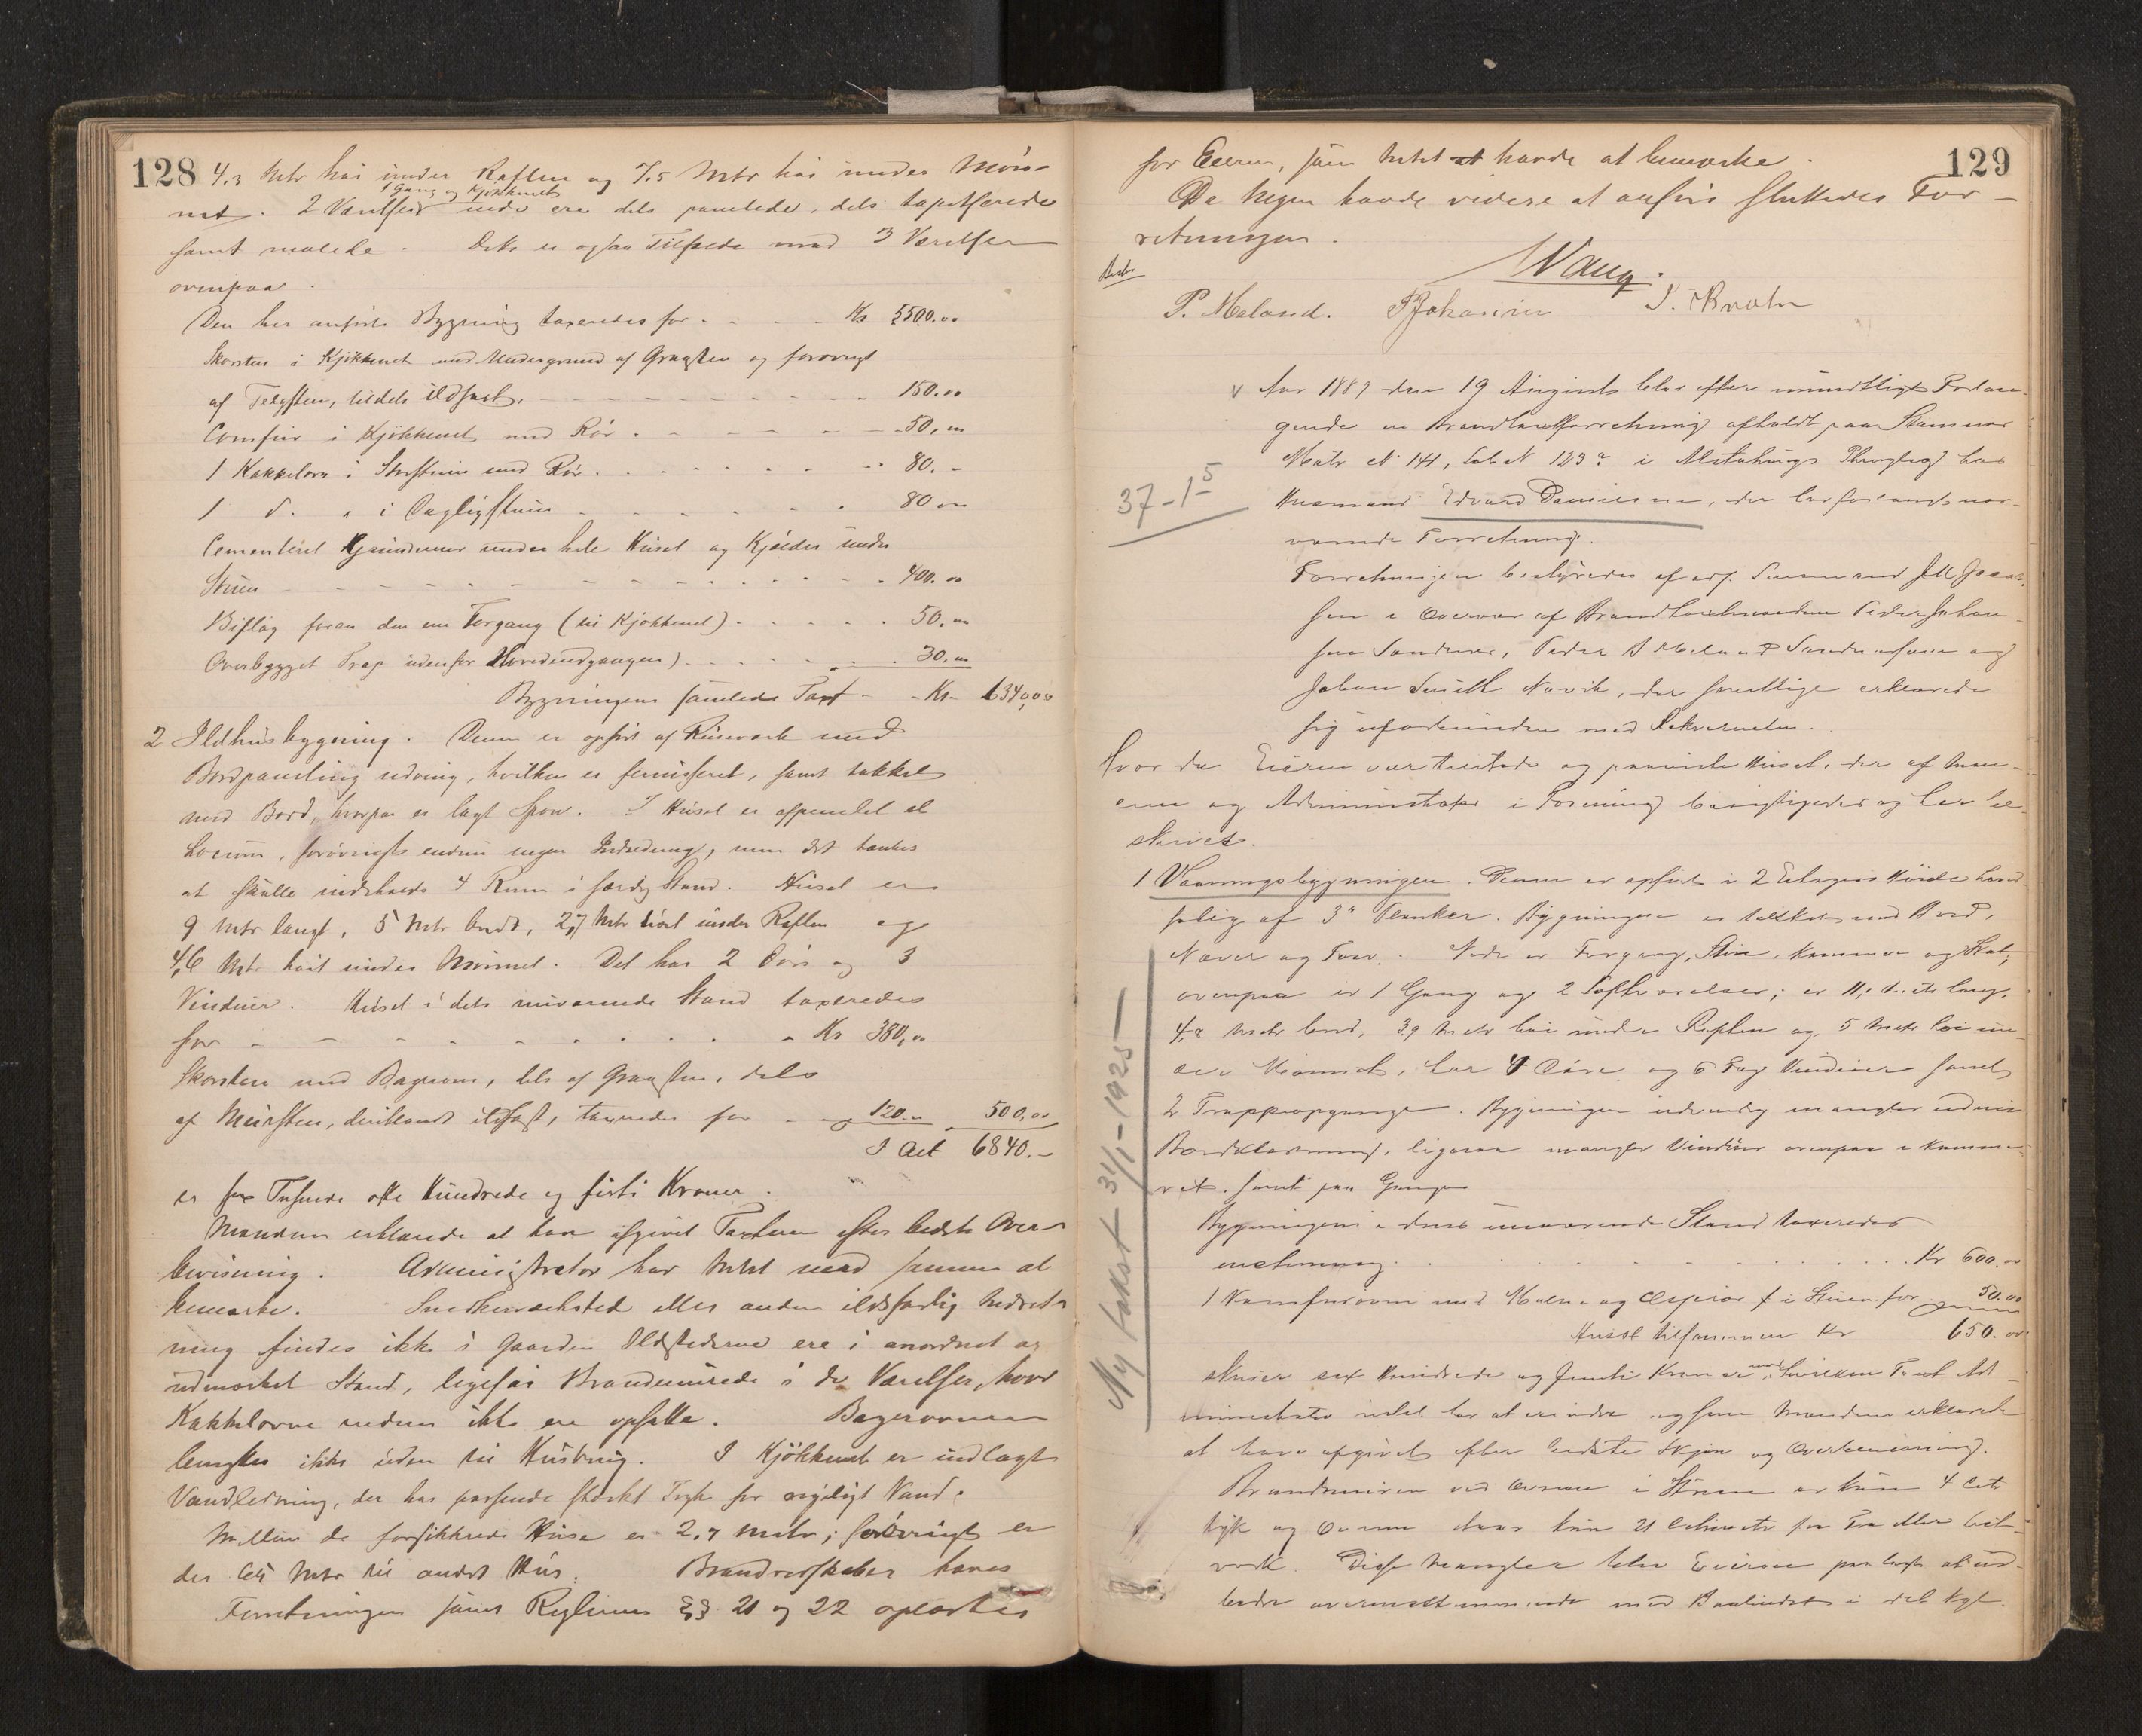 128
4,3 Mtr høi under Raften og 7.5 Mtr høi under Møn-
net. 2 Værelser 1 Gang og Kjøkkenet nede ere dels panelede, dels tapetserede
samt malede. Dets er ogsaa Tilfælde med 3 Værelser
ovenpaa.
Den her anførte Bygning taxeredes for - - - Kr 5500.00
Skorsten i Kjøkkenet med Undergrund af Graasten og forøvrigt
af Teglsten, tildels ildfast. - - - 150.00
Comfur i Kjøkkenet med Rør - - - 50,00
1 Kakkelovn i Storstuen med Rør - - - 80.-
1 d. " i Dagligstuen - - - 80 00
Cementeret Grundmur under hele Huset og Kjælder under
Stuen - - - 400.00
Bislag foran den ene Forgang (til Kjøkkenet) - - - 50.00
Overbygget Trap udenfor Hovedindgangen) - - - 30,00
Bygningens samlede Taxt - - Kr - 6340,00
2 Ildhusbygning. Denne er opført af Reisværk med
Bordpaneling udvendig, hvilken er ferniseret, samt takket
med Bord, hvorpaa er lagt Spon. I Huset er afpanelet et
Locum, forøvrigt endnu ingen Indredning, men det tænkes
at skulle indeholde 4 Rum i færdig Stand. Huset er
9 Mtr langt, 5 Mtr bredt, 2,7 Mtr høit under Raften og
4,6 Mtr høit under Mønnet. Det har 2 Døre og 3
Vinduer. Huset i dets nuværende Stand taxeredes
for - - - Kr 380,00
Skorsten med Bagerovn, dels af Graasten, dels
af Mursten, deriblandt ildfast, taxeredes for - - 120.00 500,00
I Alt 6840.-
er sex Tusinde otte Hundrede og firti Kroner.
Mændene erklærede at have afgivet Taxten efter bedste Over-
bevisning. Administrator har Intet mod samme at
bemærke. Snedkerværksted eller anden ildsfarlig Indret-
ning findes ikke i Gaarden Ildstederne ere i anordnet og
udmærket Stand, ligesaa Brandmurede i de Værelser, hvor
Kakkelovne endnu ikke ere opsatte. Bagerovnen
benyttes ikke uden til Husbrug. I Kjøkkenet er indlagt
Vandledning, der har passende stærkt Tryk for rigeligt Vand.
Mellem de forsikkrede Huse er 2,7 Mtr; forøvrigt er
der Mtr til andet Hus. Brandredskaber haves
Forretningen samt Reglernes §§ 21 og 22 oplæstes
129
for Eieren, som Intet havde at bemærke.
Da Ingen havde videre at anføre sluttedes For-
retningen.
Wang.
P. Meland. P Johansen
Aar 1889 den 19 August blev efter mundtligt Forlan-
gende en Brandtaxtforretning afholdt paa Stamnæs
Matr N 141, Løb N 123a i Alstahaugs Thinglag hos
Husmand Edvard Danielsen, der har forlangt nær-
værende Forretning.
37-1-5
Forretningen bestyredes af
sen i Overvær af Brandtaxtmændene Peder Johan-
sen Sandnes, Peder Meland Sandnessjøen og
Johan Novik, der samtlige erklærede
sig uforbundne med Rekvirenten.
Hvor da Eieren var tilstede og paaviste Huset, der af Mæn-
ene og Administrator i Forening besigtigedes og her be-
skrives.
1 Vaaningsbygningen. Denne er opført i 2 Etagers Høide hoved-
salig af 3" Planker. Bygningen er takket med Bord,
Næver og Torv. Nede er Forgang, Stue, Kammer og
ovenpaa er 1 Gang og 2 Loftsværelser; er
4,2 Metr bred, 3,9 Metr høi under Raften og 5 Metr høi un-
der Mønnet, har 4 Døre og 6 Fag Vinduer samt
2 Trappeopgange. Bygningen udvendig mangler endnu
Bordklædning, ligesaa mangler Vinduer ovenpaa i Kamme-
ret samt paa Gangen
Bygningen i dens nuværende Stand taxeredes
enstemmig - - - Kr 600.00
1 Komfurovn med og Rør i Stuen for 50.00
Huset tilsammen Kr 650.00
skriver sex Hundrede og femti Kroner, mod hvilken Taxt Ad-
ministrator intet har at erindre og som Mændene erklærede
at have afgivet efter bedste Skjøn og Overbevisning.
Brandmuren ved Ovnen i Stuen er kun 4
tyk og Ovnen staar kun 21 fra Træ eller
værk. Disse Mangler blev Eieren paalagt at ud-
bedre overensstemmende med Paabudet i det kgl.
Ny takst 31/1-1925